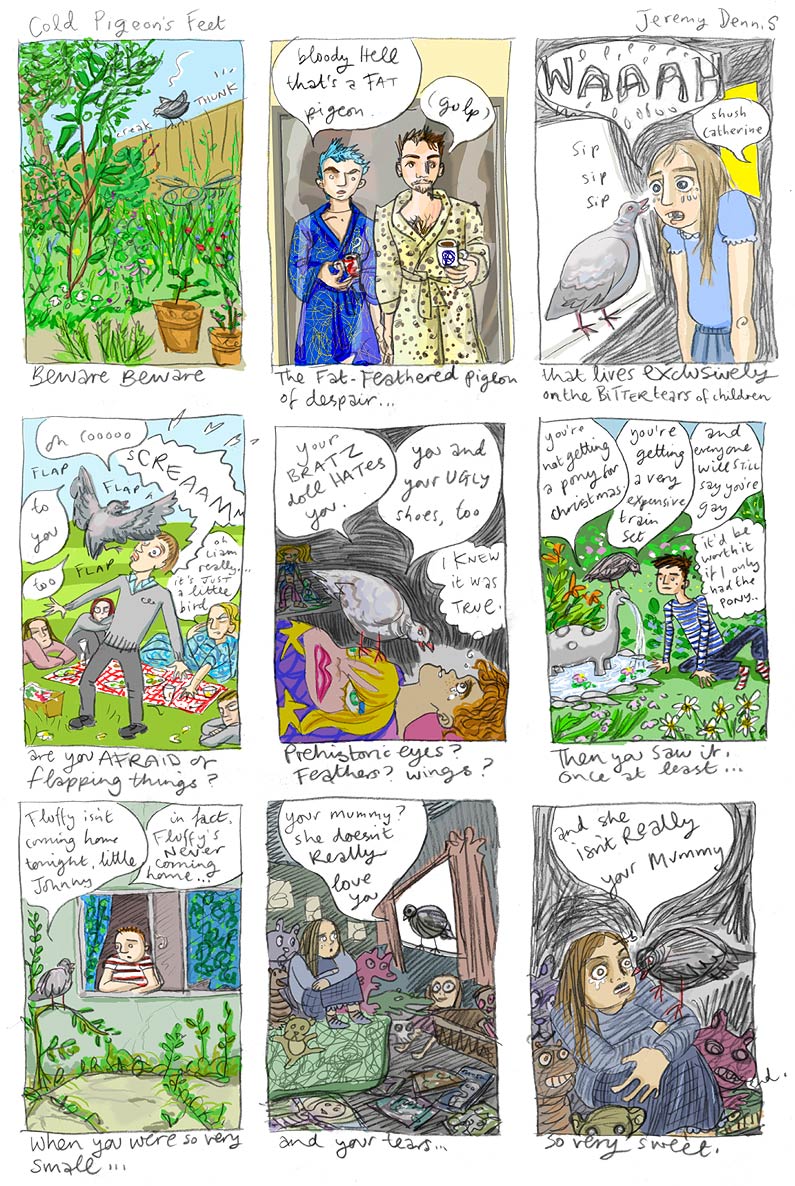 Cold Pigeon's Feet
Jeremy Dennis
creak
THUNK
Beware Beware
bloody Hell
that's a FAT
pigeon.
(gulp)
The Fat-Feathered pigeon
of despair...
WAAAH
shush
Catherine
Sip
sip
sip
that lives exclusively
on the BITTER tears of children
oh cooooo
SCREAAMM
FLAP
FLAP
FLAP
to
you
too
oh
Liam
really...
it's JUST
a little
bird
are you AFRAID of
flapping things?
your
BRATZ
doll HATES
you.
you and
your UGLY
shoes, too
I KNEW
it was
TRUE.
Prehistoric eyes?
Feathers? wings?
you're
not getting
a pony for
christmas.
you're
getting
a very
expensive
train
set
and
everyone
will STILL
say you're
gay
it'd be
worth it
if I only
had the
PONY..
Then you saw it.
once at least...
Fluffy isn't
coming home
tonight, little
Johnny
in fact,
Fluffy's
NEVER
coming
home...
when you were so very
small...
your mummy?
she doesn't
Really
love
you
and your tears...
and she
isn't Really
your Mummy
end.
so very sweet.